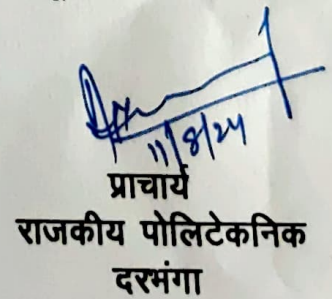 11/8/24
प्राचार्य
राजकीय पोलिटेकनिक
दरभंगा